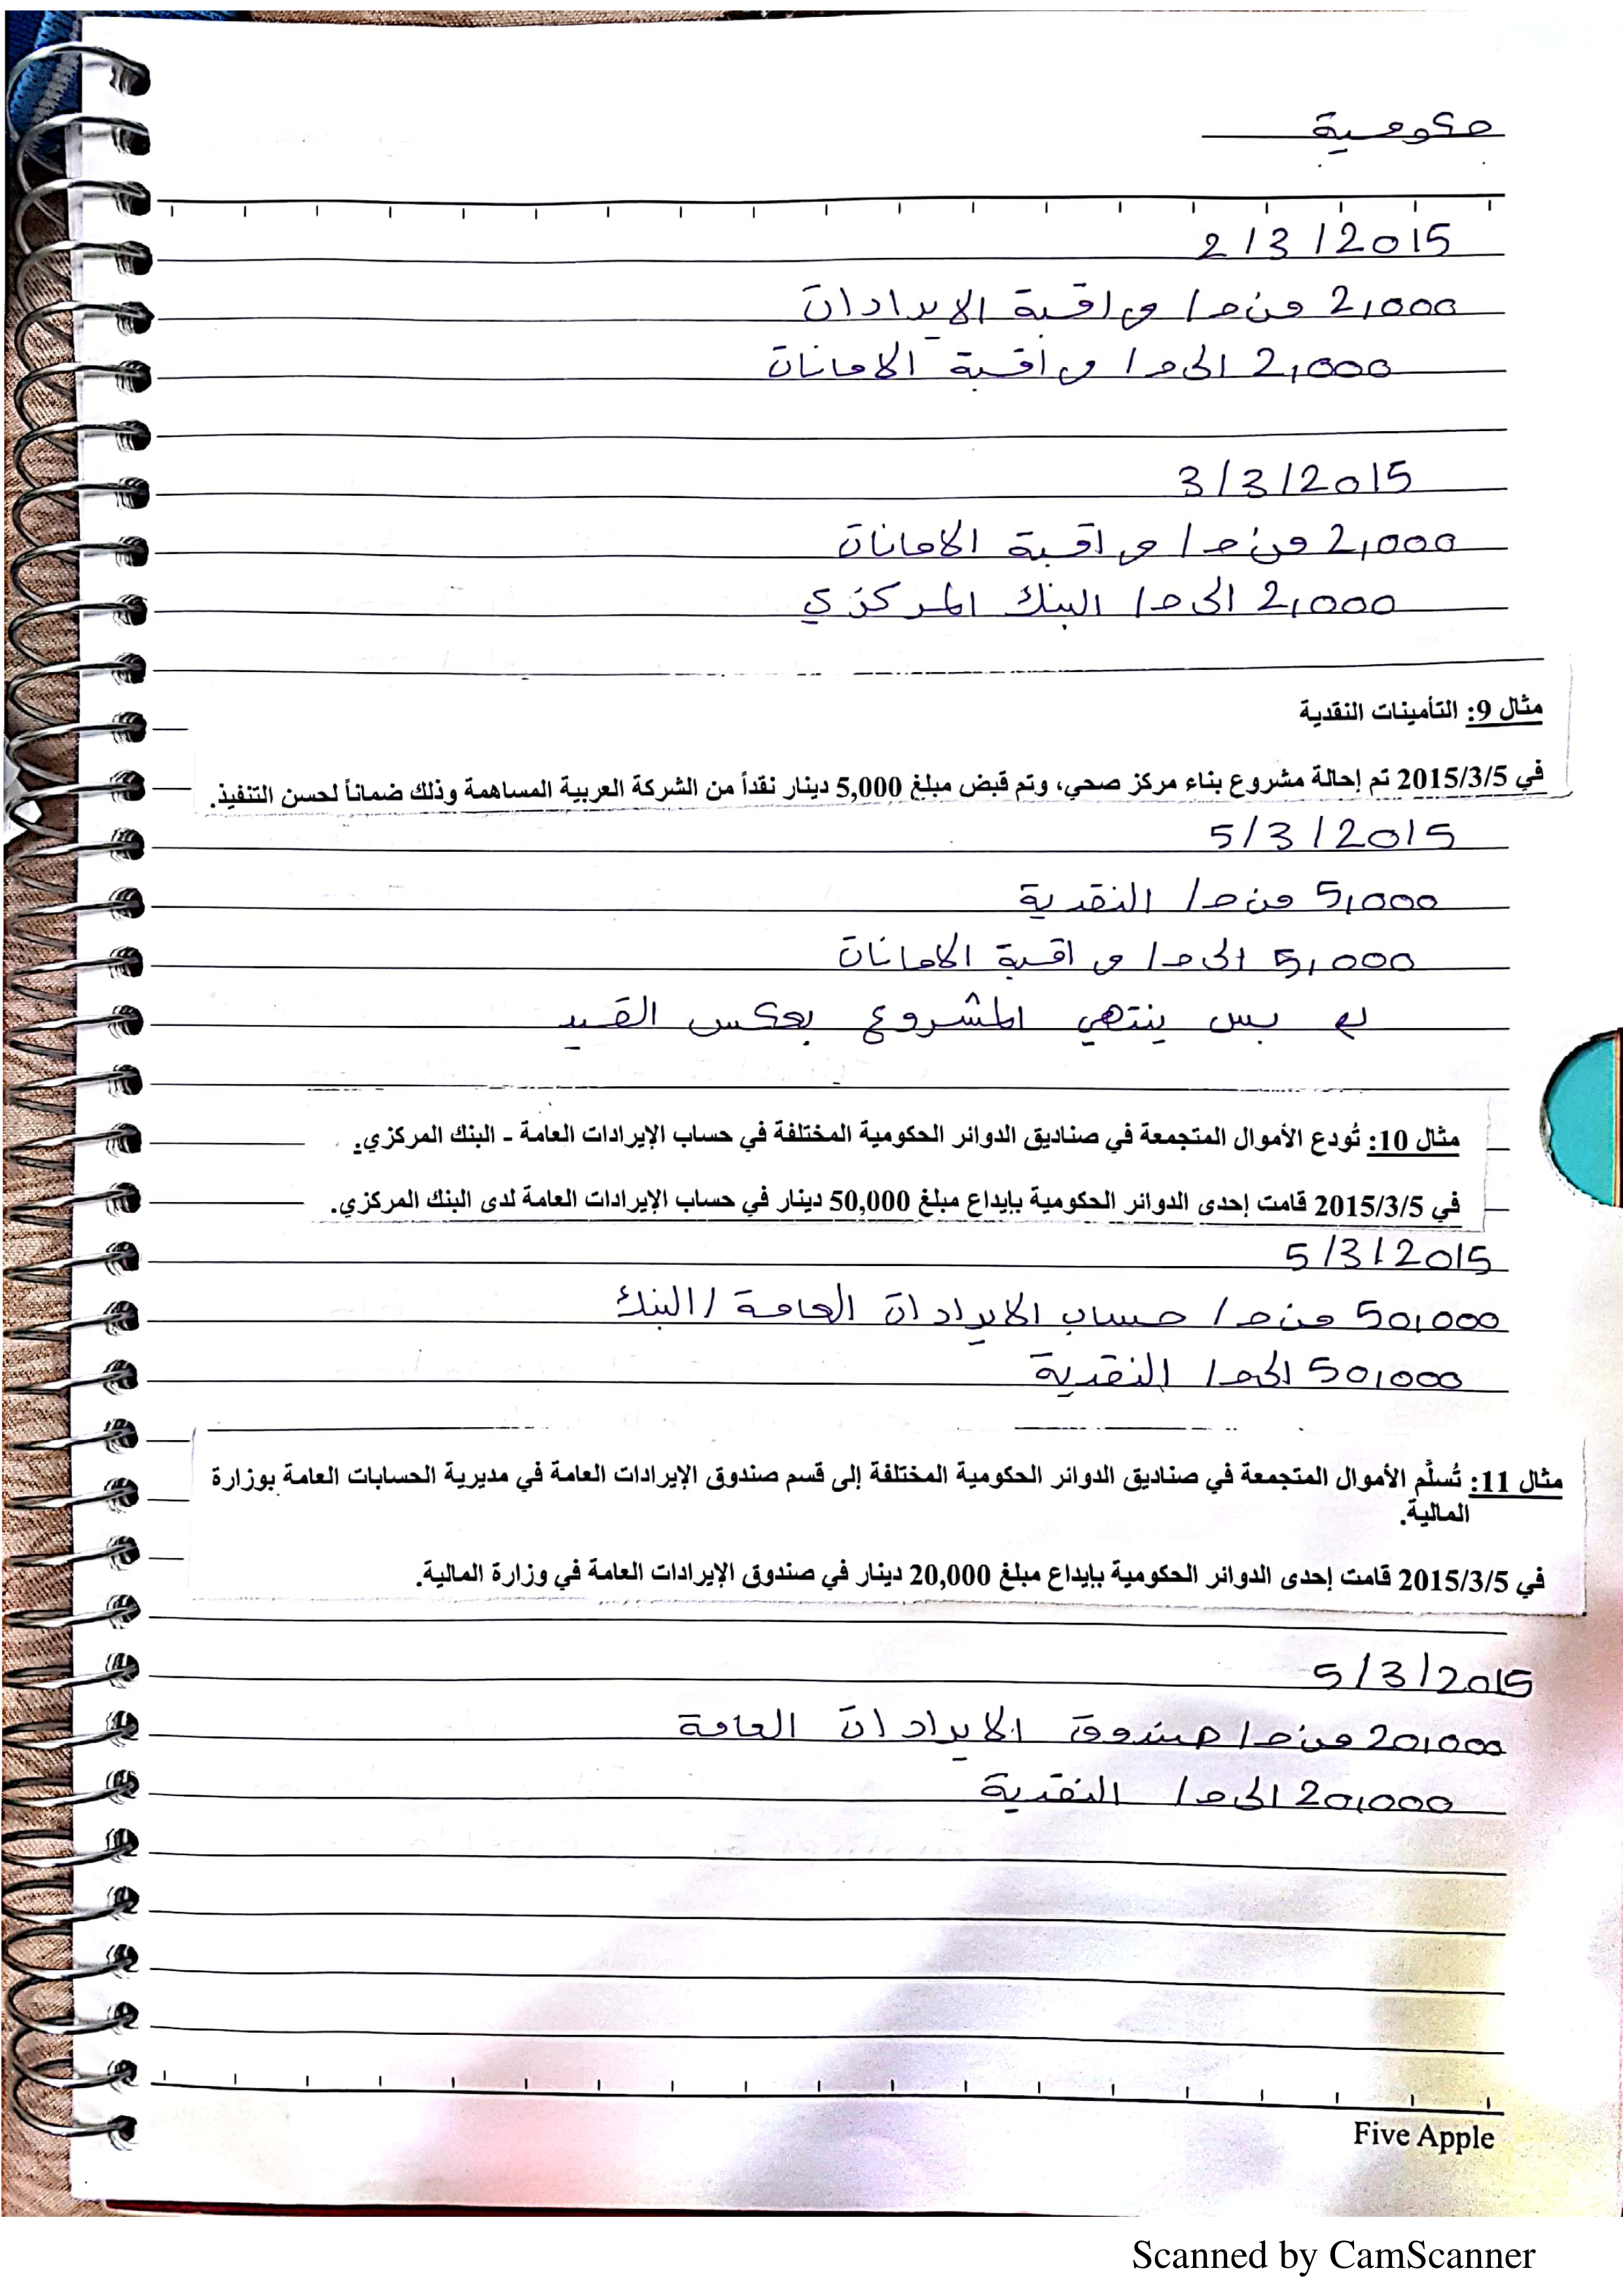 حكومية
2/3/2015
2,000 من ح/ مراقبة الايرادات
2,000 الى ح/ مراقبة الامانات
3/3/2015
2,000 من ح/ مراقبة الامانات
2,000 الى ح/ البنك المركزي
مثال 9: التأمينات النقدية
في 2015/3/5 تم إحالة مشروع بناء مركز صحي، وتم قبض مبلغ 5,000 دينار نقداً من الشركة العربية المساهمة وذلك ضماناً لحسن التنفيذ.
5/3/2015
5,000 من ح/ النقدية
5,000 الى ح/ مراقبة الامانات
بس ينتهي المشروع بعكس القيد
مثال 10: تُودع الأموال المتجمعة في صناديق الدوائر الحكومية المختلفة في حساب الإيرادات العامة - البنك المركزي.
في 2015/3/5 قامت إحدى الدوائر الحكومية بإيداع مبلغ 50,000 دينار في حساب الإيرادات العامة لدى البنك المركزي.
5/3/2015
50,000 من ح/ حساب الايرادات العامة /البنك
50,000 الى ح/ النقدية
مثال 11: تُسلَّم الأموال المتجمعة في صناديق الدوائر الحكومية المختلفة إلى قسم صندوق الإيرادات العامة في مديرية الحسابات العامة بوزارة
المالية.
في 2015/3/5 قامت إحدى الدوائر الحكومية بإيداع مبلغ 20,000 دينار في صندوق الإيرادات العامة في وزارة المالية.
5/3/2015
20,000 من ح/ صندوق الايرادات العامة
20,000 الى ح/ النقدية
Five Apple
Scanned by CamScanner